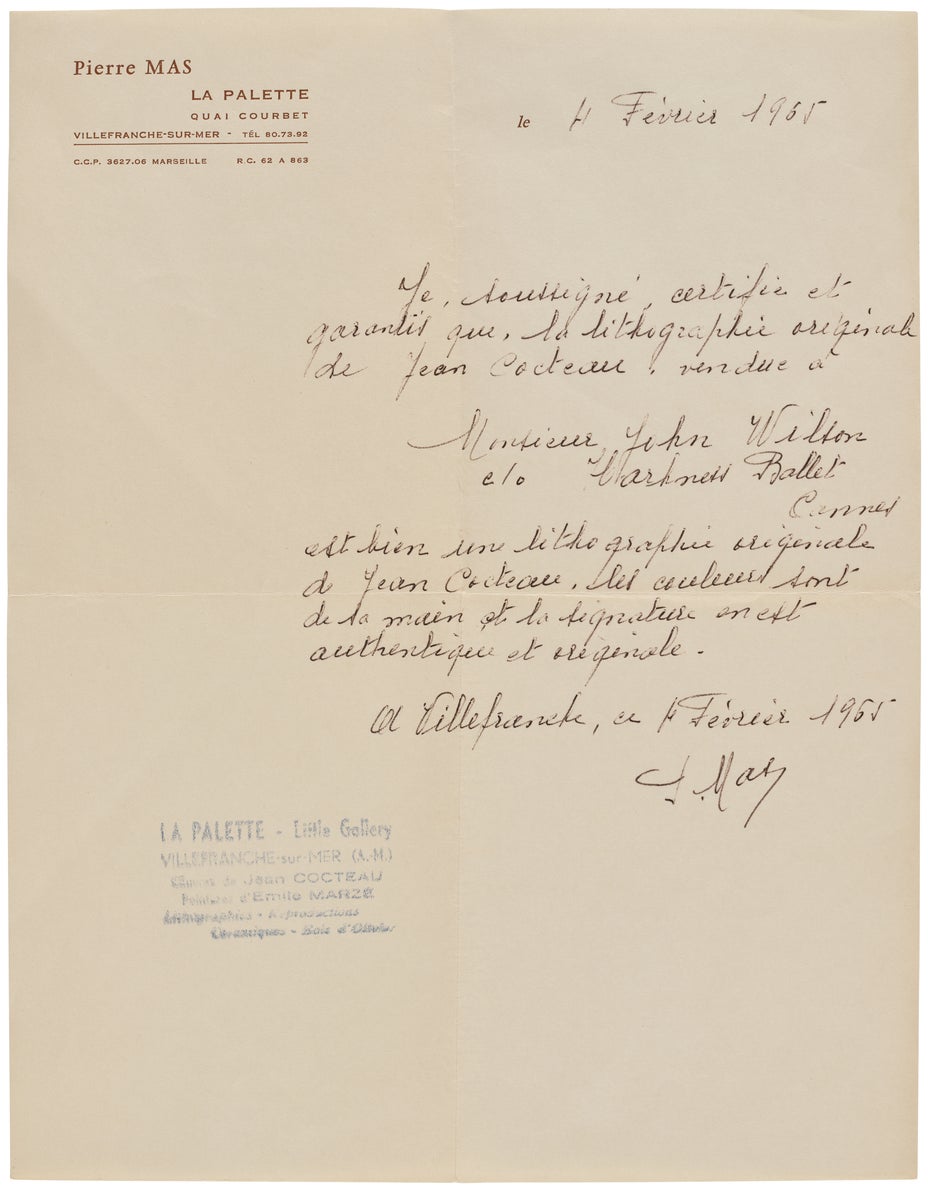 Pierre MAS
LA PALETTE
QUAI COURBET
VILLEFRANCHE-SUR-MER - TÉL 80.73.92
C.C.P. 3627.06 MARSEILLE R.C. 62 A 863
le 4 Février 1965
Je, soussigné, certifie et
garantis que, la lithographie originale
de Jean Cocteau, vendue à
Monsieur John Wilson
c/o Harkness Ballet
Cannes
est bien une lithographie originale
de Jean Cocteau. Les couleurs sont
de sa main et la signature en est
authentique et originale.
A Villefranche, ce 4 Février 1965
P. Mas
LA PALETTE - Little Gallery
VILLEFRANCHE-sur-MER (A.-M.)
Œuvres de Jean COCTEAU
Peintures d'Emile MARZÉ
Lithographies - Reproductions
Céramiques - Bois d'Olivier